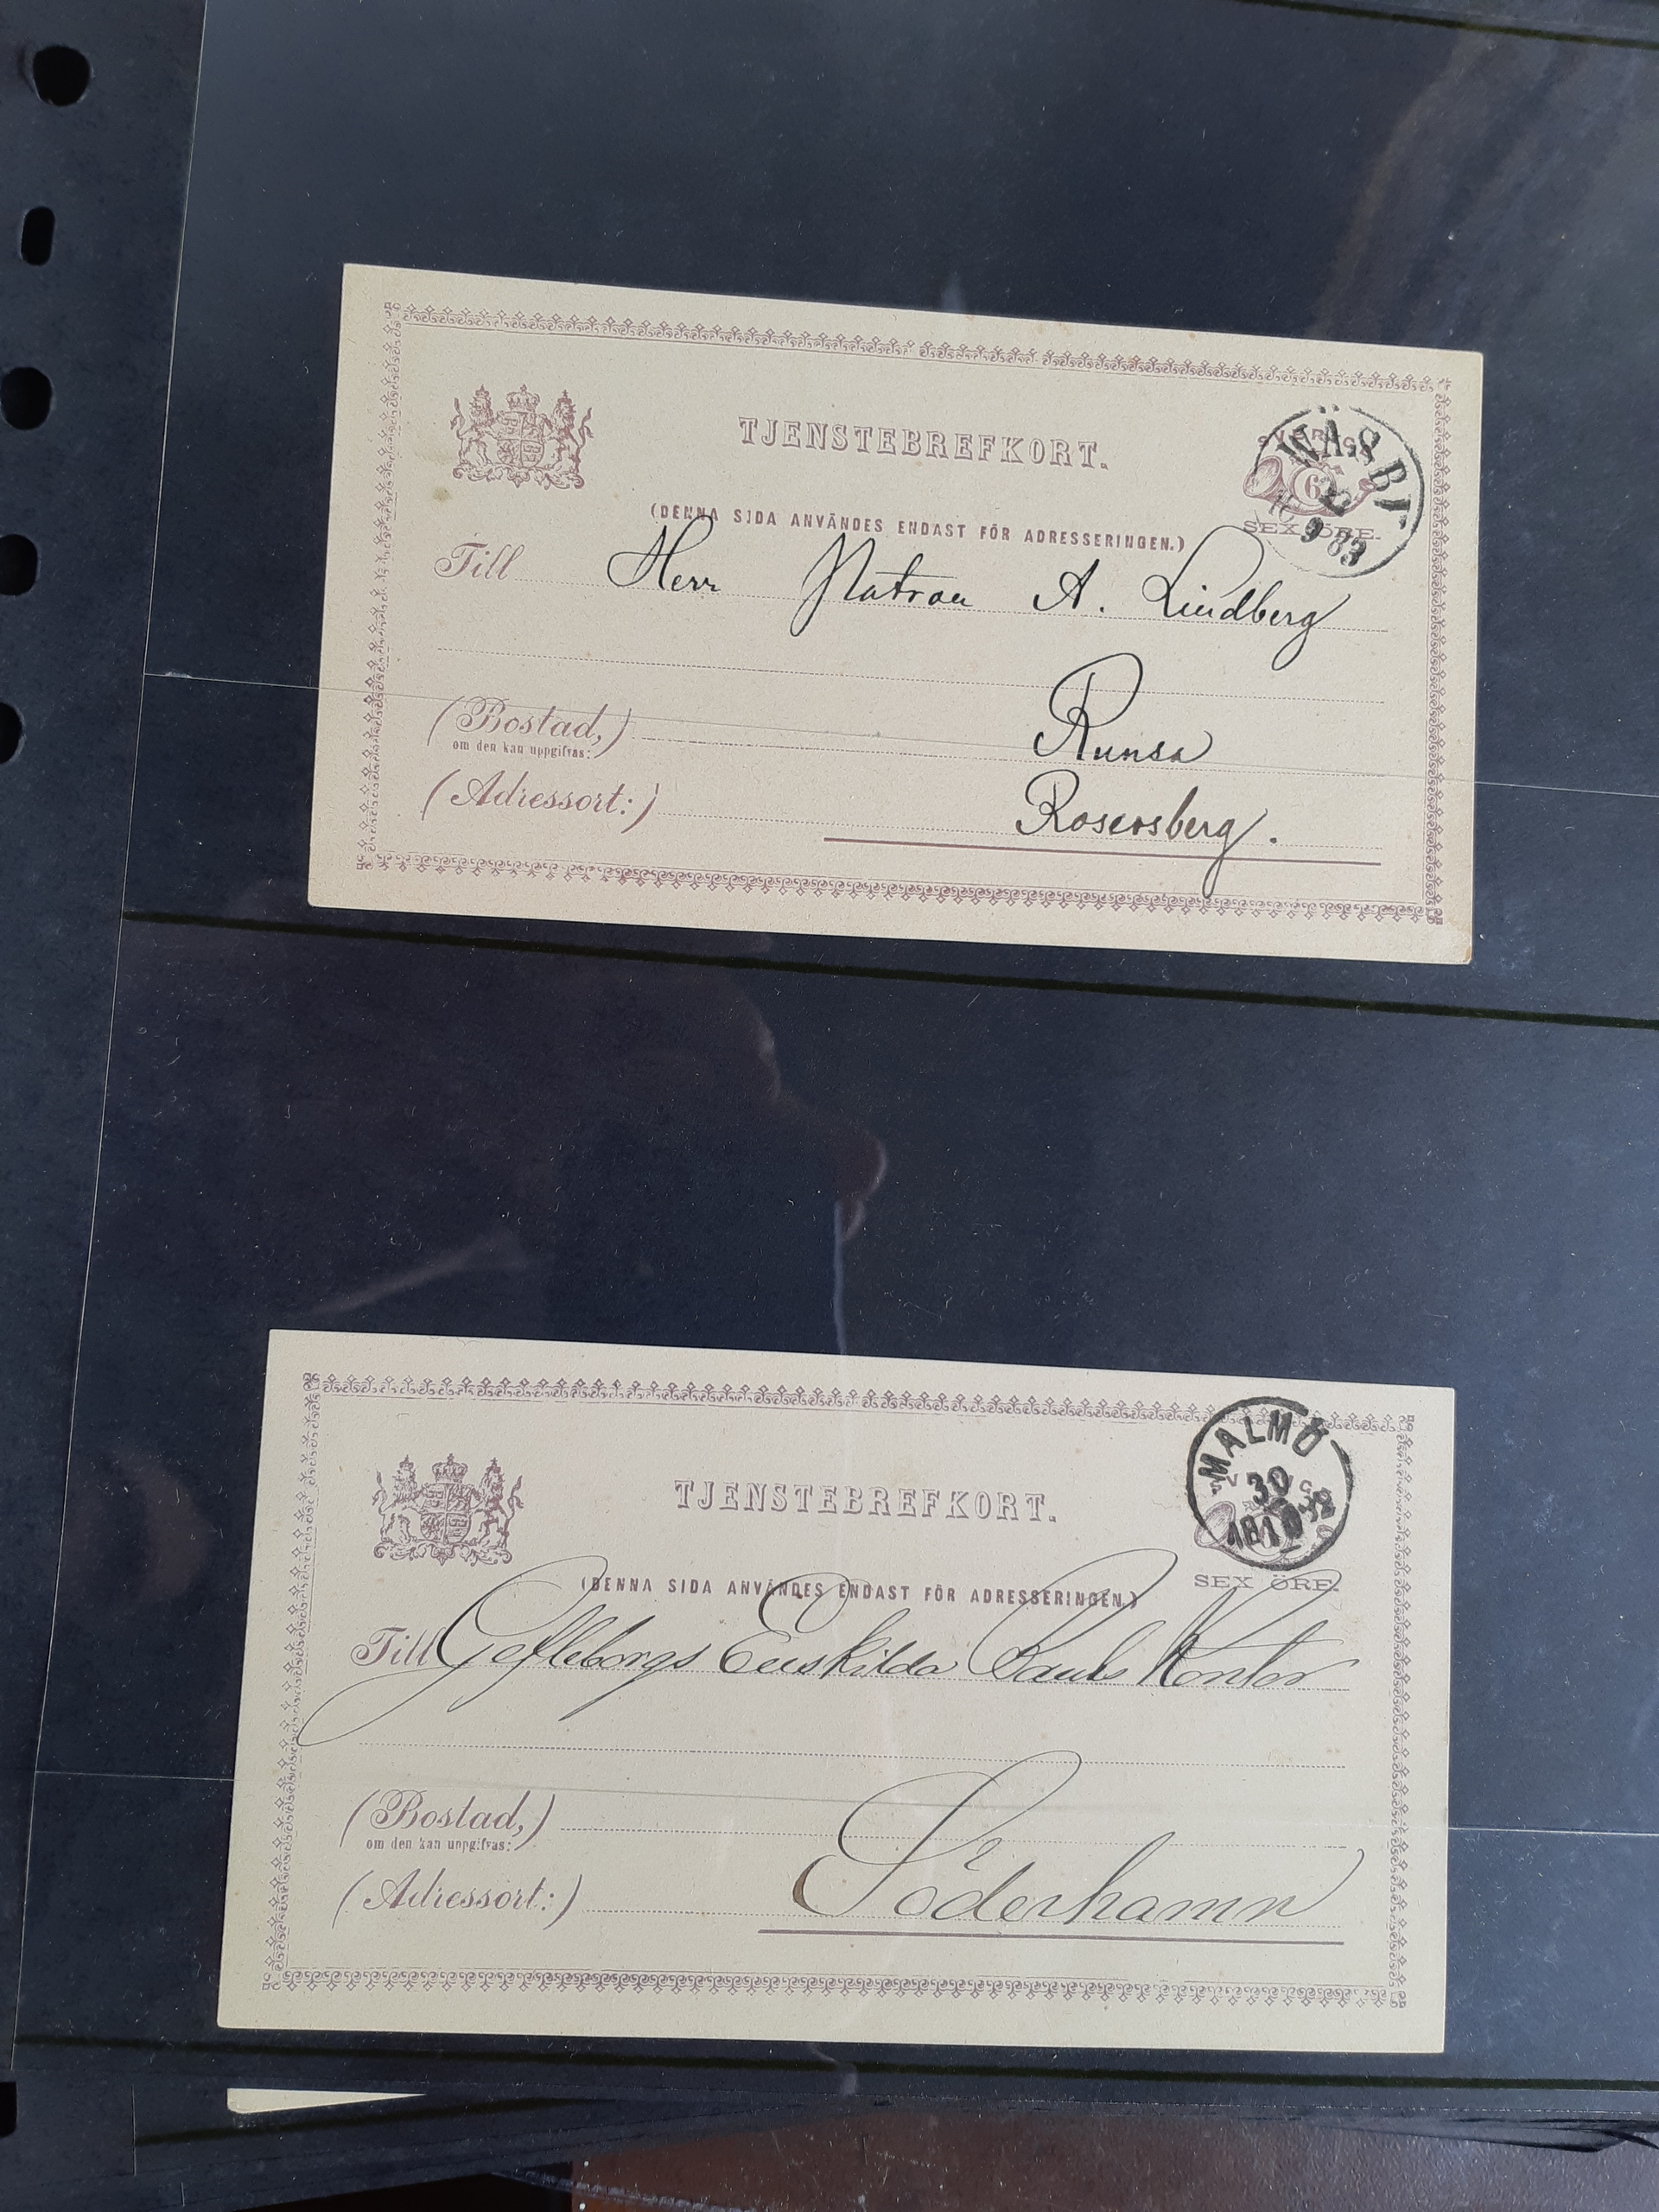 TJENSTEBREFKORT.
WÄSBY
6
9 83
SEX ÖRE.
(DENNA SIDA ANVÄNDES ENDAST FÖR ADRESSERINGEN.)
Till Herr Patron A. Lindberg
(Bostad,) Runsa
om den kan uppgifvas:
(Adressort:) Rosersberg.
MALMÖ
30
TJENSTEBREFKORT.
SEX ÖRE.
(DENNA SIDA ANVÄNDES ENDAST FÖR ADRESSERINGEN.)
Till Gefleborgs Enskilda Banks Kontor
(Bostad,)
om den kan uppgifvas:
(Adressort:) Söderhamn